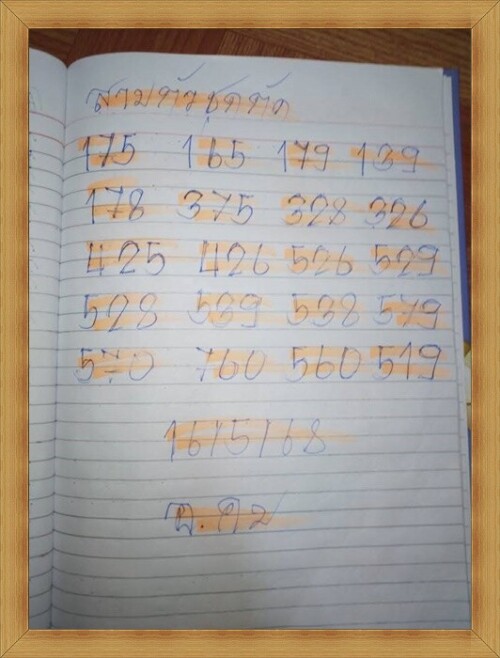 สามตัวชุดคัด
175 165 179 139
178 375 328 326
425 426 526 529
528 539 538 579
570 760 560 519
16/5/68